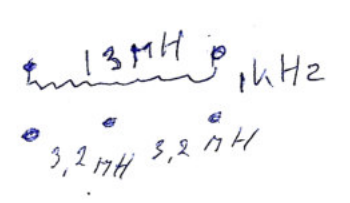 13 MH 1kHz
3,2 MH 3,2 MH